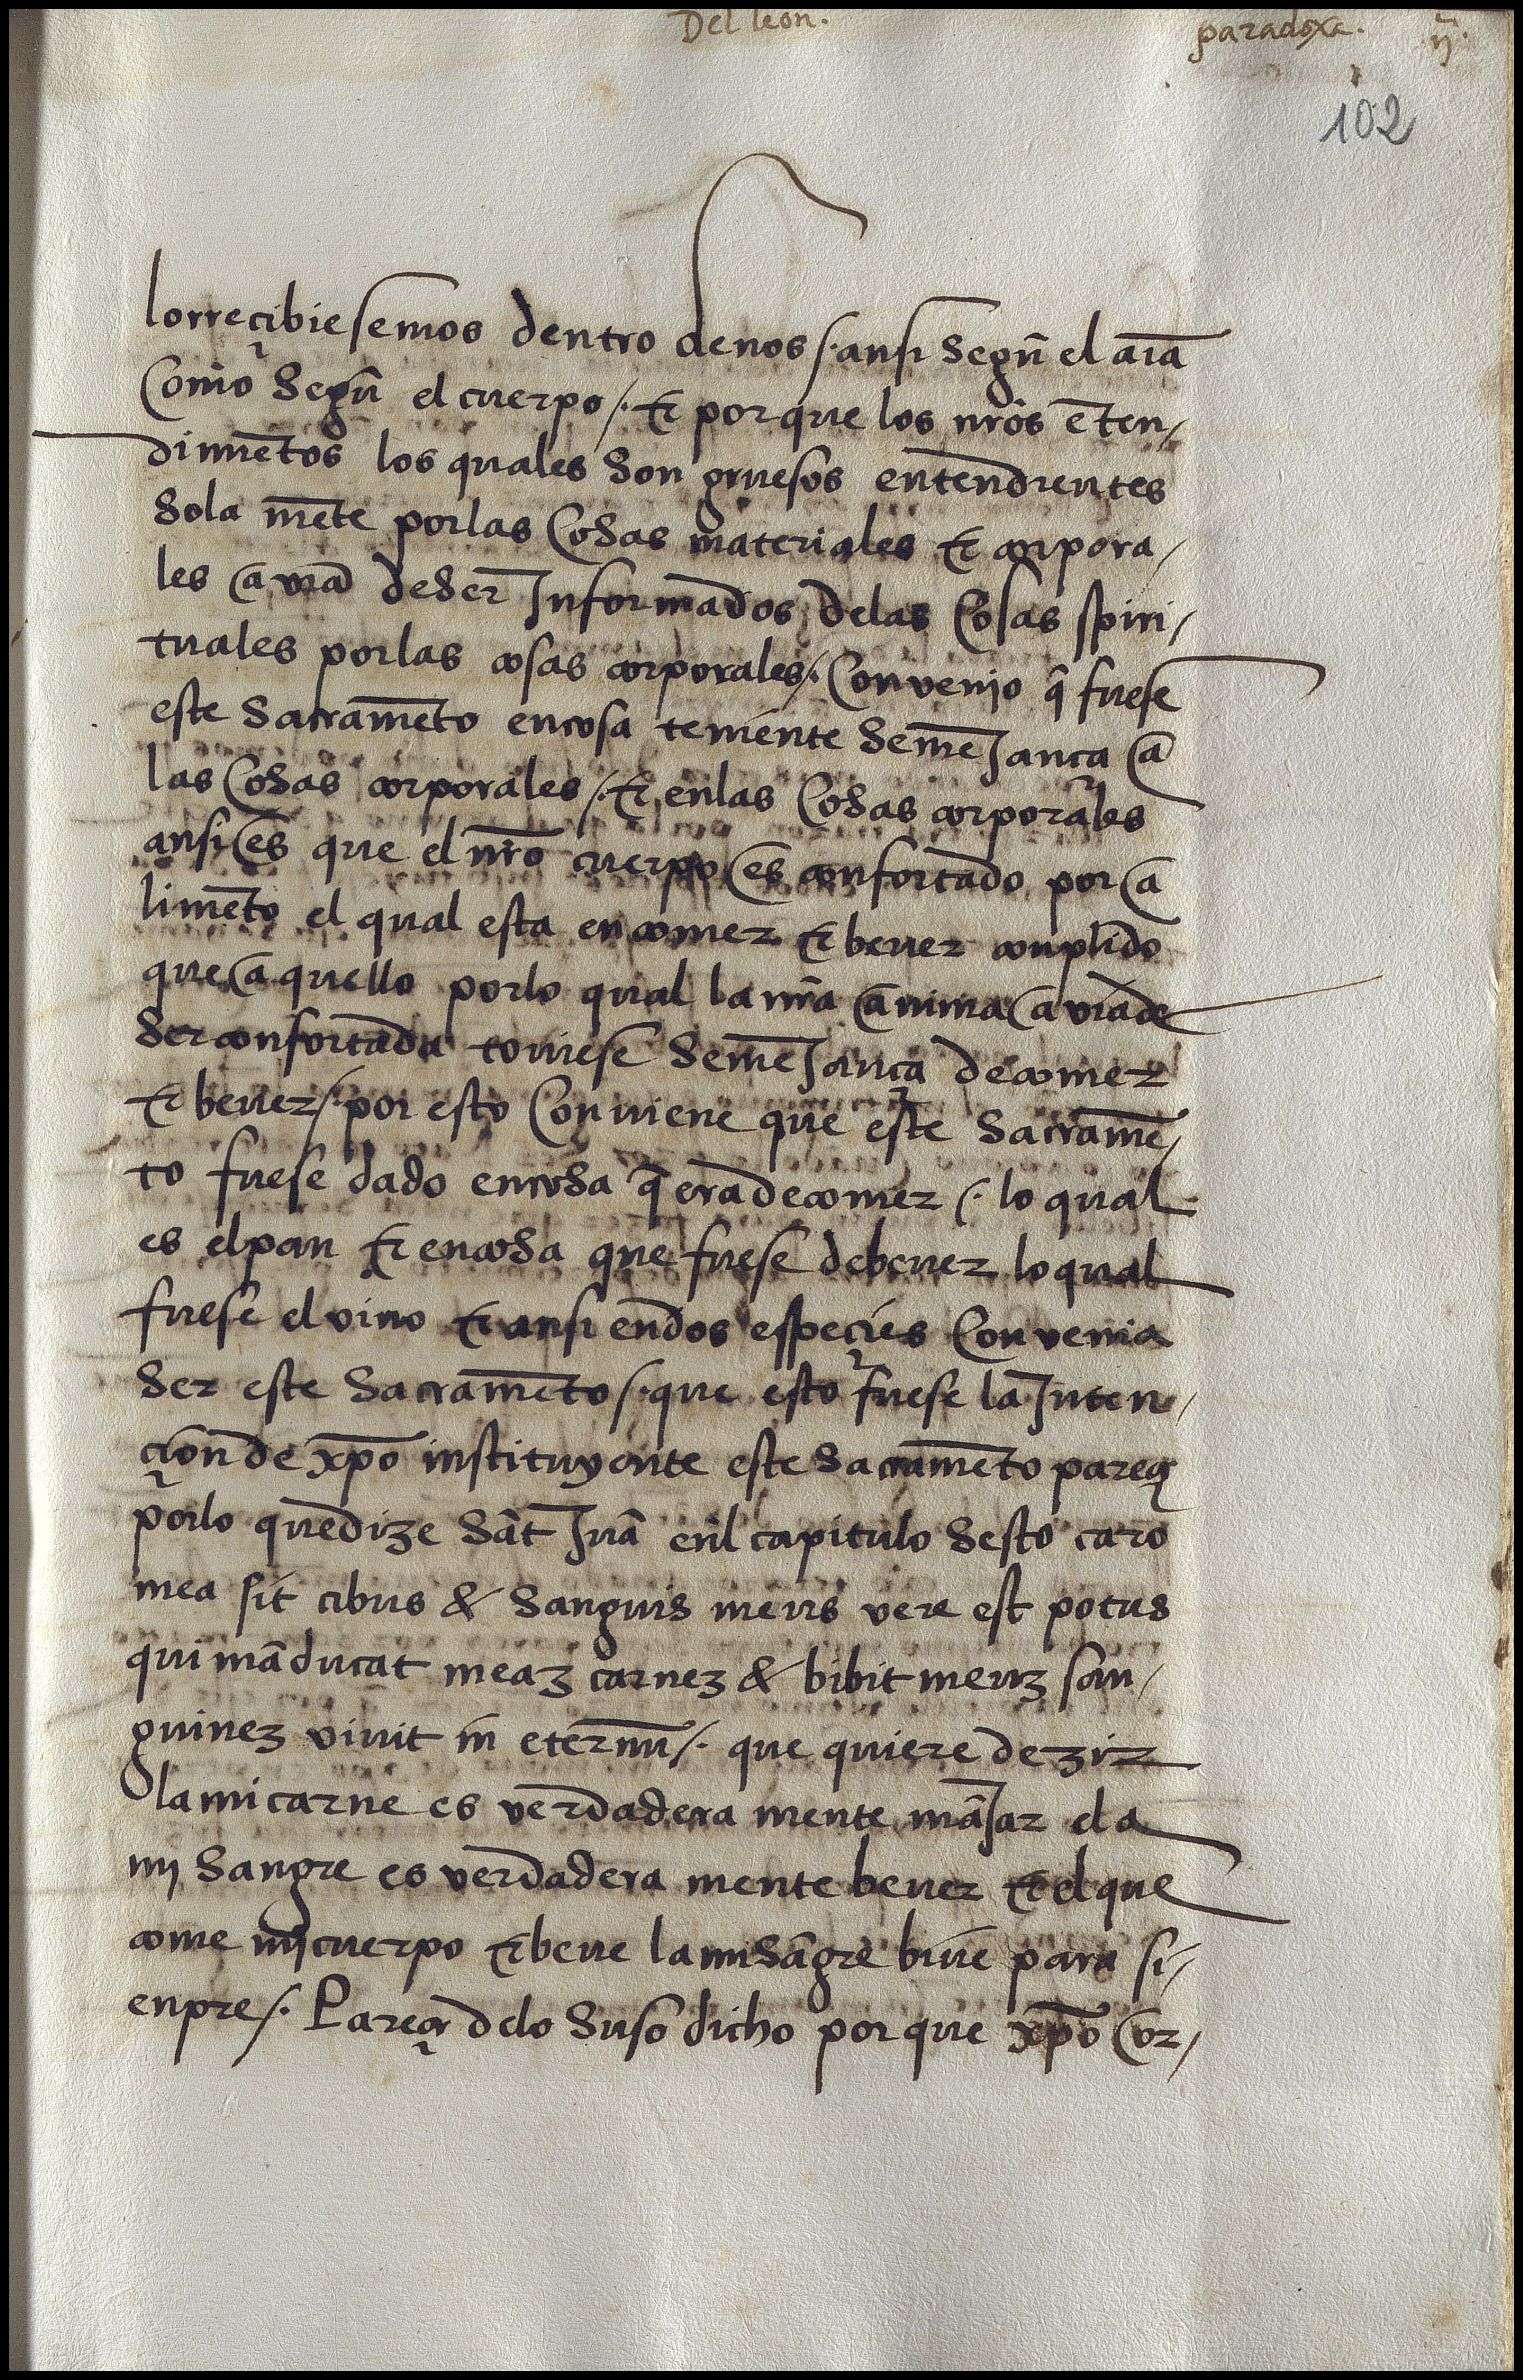 Del leon. paradoxa. ij.
102
lo rreçibiesemos dentro de nos /. ansi segũ el aĩa
Como segũ el cuerpo /. τ por que los nr̃os ẽten/
dimiẽtos los quales son gruesos entendientes
sola mẽte por las cosas materiales τ corpora/
les a uia de ser Informados delas cosas spiri/
tuales por las cosas corporales /. Convenjo q̃ fuese
este sacramẽto en cosa teniente semeJança a
las cosas corporales /. τ en las cosas corporales
ansi es que el nr̃o cuerpo es confortado por a
limẽto el qual esta en comer τ bever conplido
que a quello por lo qual la nr̃a anima a uia de
ser confortada touiese semeJança de comer
τ bever /. por esto Conuiene que este sacramẽ/
to fuese dado en cosa q̃ era de comer /. lo qual
es el pan τ en cosa que fuese de bever lo qual
fuese el vino τ ansi en dos especies Convenia
ser este sacramẽto /. que esto fuese la Inten/
çion de xp̃o instituyente este sacramẽto pareçe
por lo que dize sãt Juã en̄l capitulo sesto caro
mea sit cibus & sanguis meus vere est potus
qui mãducat meaz carnez & bibit meuz san/
guinez viuit in eternũ /. que quiere dezir
la mi carne es verdadera mente mãJar e la
mj sangre es verdadera mente bever τ el que
come mj cuerpo τ beve la mi sãgre biue para si/
enpre /. Pareçe de lo suso dicho por que xp̃o cor/